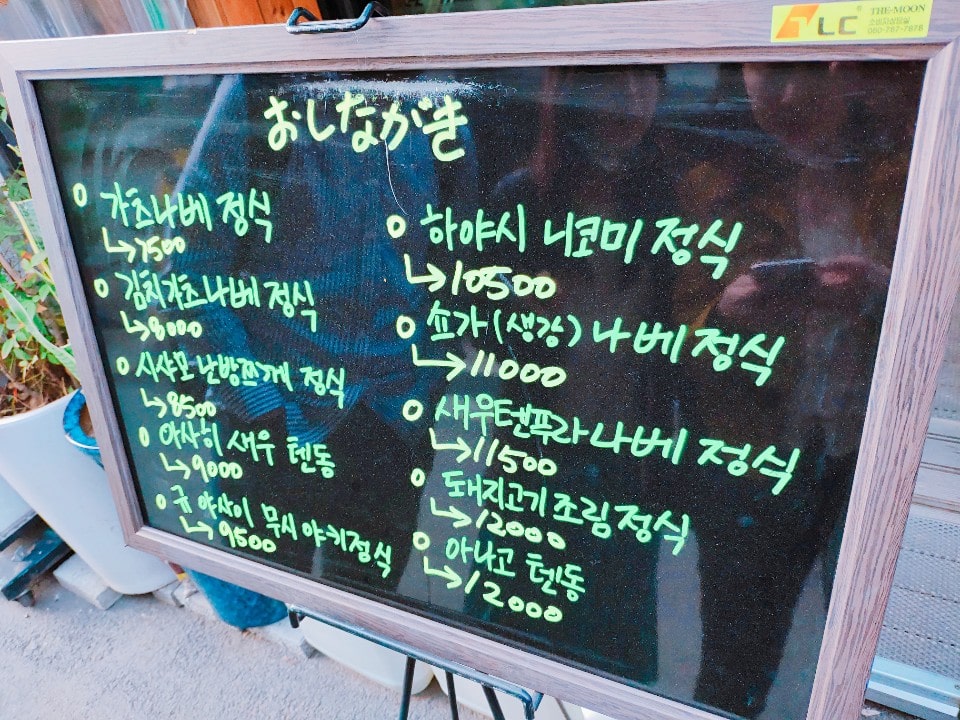 おしながき
가츠나베 정식
↳7500
김치가츠나베 정식
↳8000
시샤모 난방쯔께 정식
↳8500
아사히 새우 텐동
↳9000
규 야사이 무시 야키정식
↳9500
하야시 니코미 정식
↳10500
쇼가(생강) 나베 정식
↳11000
새우텐푸라 나베 정식
↳11500
돼지고기 조림 정식
↳12000
아나고 텐동
↳12000
TLC
THE-MOON